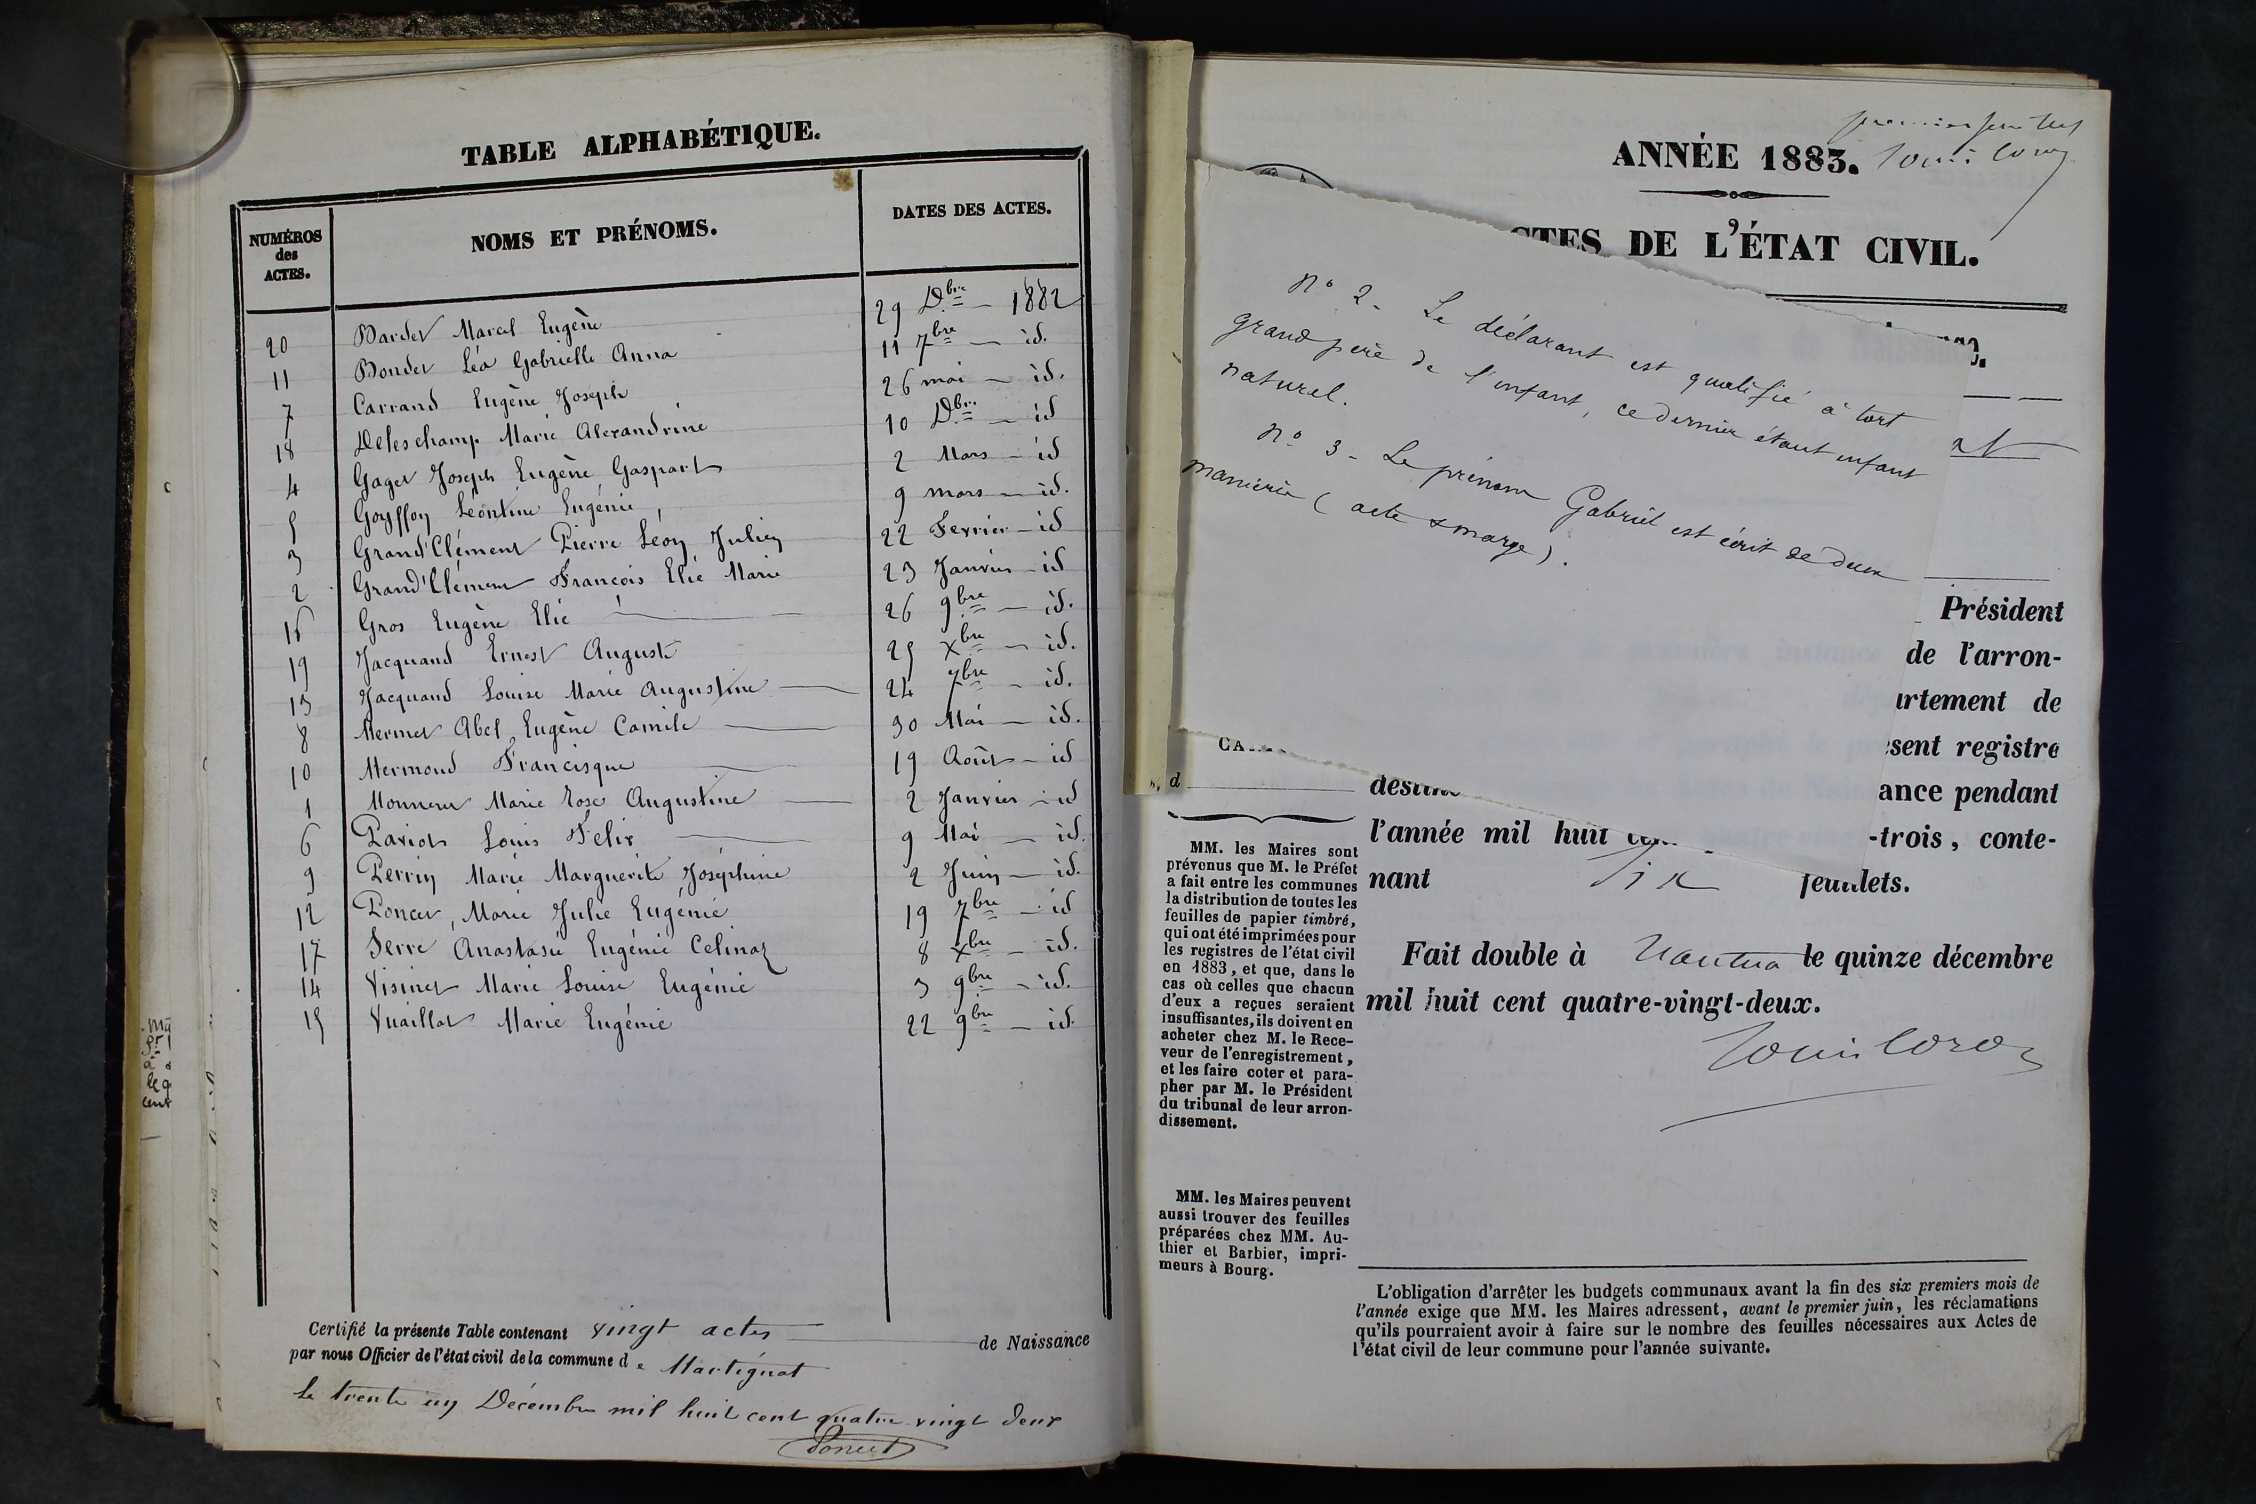 TABLE ALPHABÉTIQUE.
NUMÉROS des ACTES. NOMS ET PRÉNOMS. DATES DES ACTES.
20 Bardet Marcel Eugène 29 Dbre — 1882
11 Bondet Léa Gabrielle Anna 11 7bre — id.
7 Carrand Eugène Joseph 26 mai — id.
18 Deleschamp Marie Alexandrine 10 Dbre — id
4 Gaget Joseph Eugène Gaspart 2 Mars — id
5 Goyffon Léontine Eugénie 9 mars — id.
3 Grand'Clément Pierre Léon Julien 22 Fevrier — id
2 Grand'Clément François Elie Marie 23 Janvier — id
16 Gros Eugène Elie 26 9bre — id.
19 Jacquand Ernest Auguste 25 Xbre — id.
13 Jacquand Louise Marie Augustine 24 7bre — id.
8 Mermet Abel Eugène Camile 30 Mai — id.
10 Mermond Francisque 19 Août — id
1 Monneret Marie Rose Augustine 2 Janvier — id
6 Pariot Louis Felix 9 Mai — id.
9 Perrin Marie Marguerite Joséphine 2 Juin — id.
12 Poncet, Marie Julie Eugénie 19 7bre — id
17 Serre Anastasie Eugénie Celina 8 Xbre — id.
14 Visinet Marie Louise Eugénie 3 9bre — id.
15 Vuaillat Marie Eugénie 22 9bre — id.
Certifié la présente Table contenant vingt actes de Naissance
par nous Officier de l'état civil de la commune de Martignat
le trente un Décembre mil huit cent quatre-vingt deux
Poncet
ANNÉE 1883.
CTES DE L'ÉTAT CIVIL.
N° 2 - Le déclarant est qualifié à tort
grand père de l'enfant, ce dernier étant enfant
naturel.
N° 3 - Le prénom Gabriel est écrit de deux
manières (acte & marge).
Président
de l'arron-
rtement de
sent registre
ance pendant
l'année mil huit -trois, conte-
nant six feuillets.
Fait double à Nantua le quinze décembre
mil huit cent quatre-vingt-deux.
Louis Coron
MM. les Maires sont
prévenus que M. le Préfet
a fait entre les communes
la distribution de toutes les
feuilles de papier timbré,
qui ont été imprimées pour
les registres de l'état civil
en 1883, et que, dans le
cas où celles que chacun
d'eux a reçues seraient
insuffisantes, ils doivent en
acheter chez M. le Rece-
veur de l'enregistrement,
et les faire coter et para-
pher par M. le Président
du tribunal de leur arron-
dissement.
MM. les Maires peuvent
aussi trouver des feuilles
préparées chez MM. Au-
thier et Barbier, impri-
meurs à Bourg.
L'obligation d'arrêter les budgets communaux avant la fin des six premiers mois de
l'année exige que MM. les Maires adressent, avant le premier juin, les réclamations
qu'ils pourraient avoir à faire sur le nombre des feuilles nécessaires aux Actes de
l'état civil de leur commune pour l'année suivante.